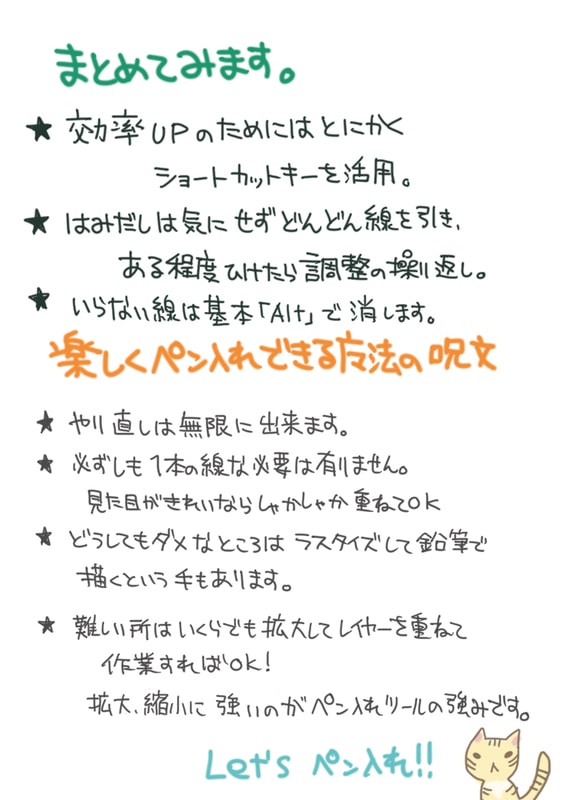 まとめてみます。
★ 効率UPのためにはとにかく
ショートカットキーを活用。
★ はみだしは気にせずどんどん線を引き、
ある程度ひけたら調整の操り返し。
★ いらない線は基本「Alt」で消します。
楽しくペン入れできる方法の呪文
★ やり直しは無限に出来ます。
★ 必ずしも1本の線な必要は有りません。
見た目がきれいならしゃかしゃか重ねてOK
★ どうしてもダメなところはラスタイズして鉛筆で
描くという手もあります。
★ 難しい所はいくらでも拡大してレイヤーを重ねて
作業すればOK!
拡大、縮小に強いのがペン入れツールの強みです。
Let's ペン入れ!!